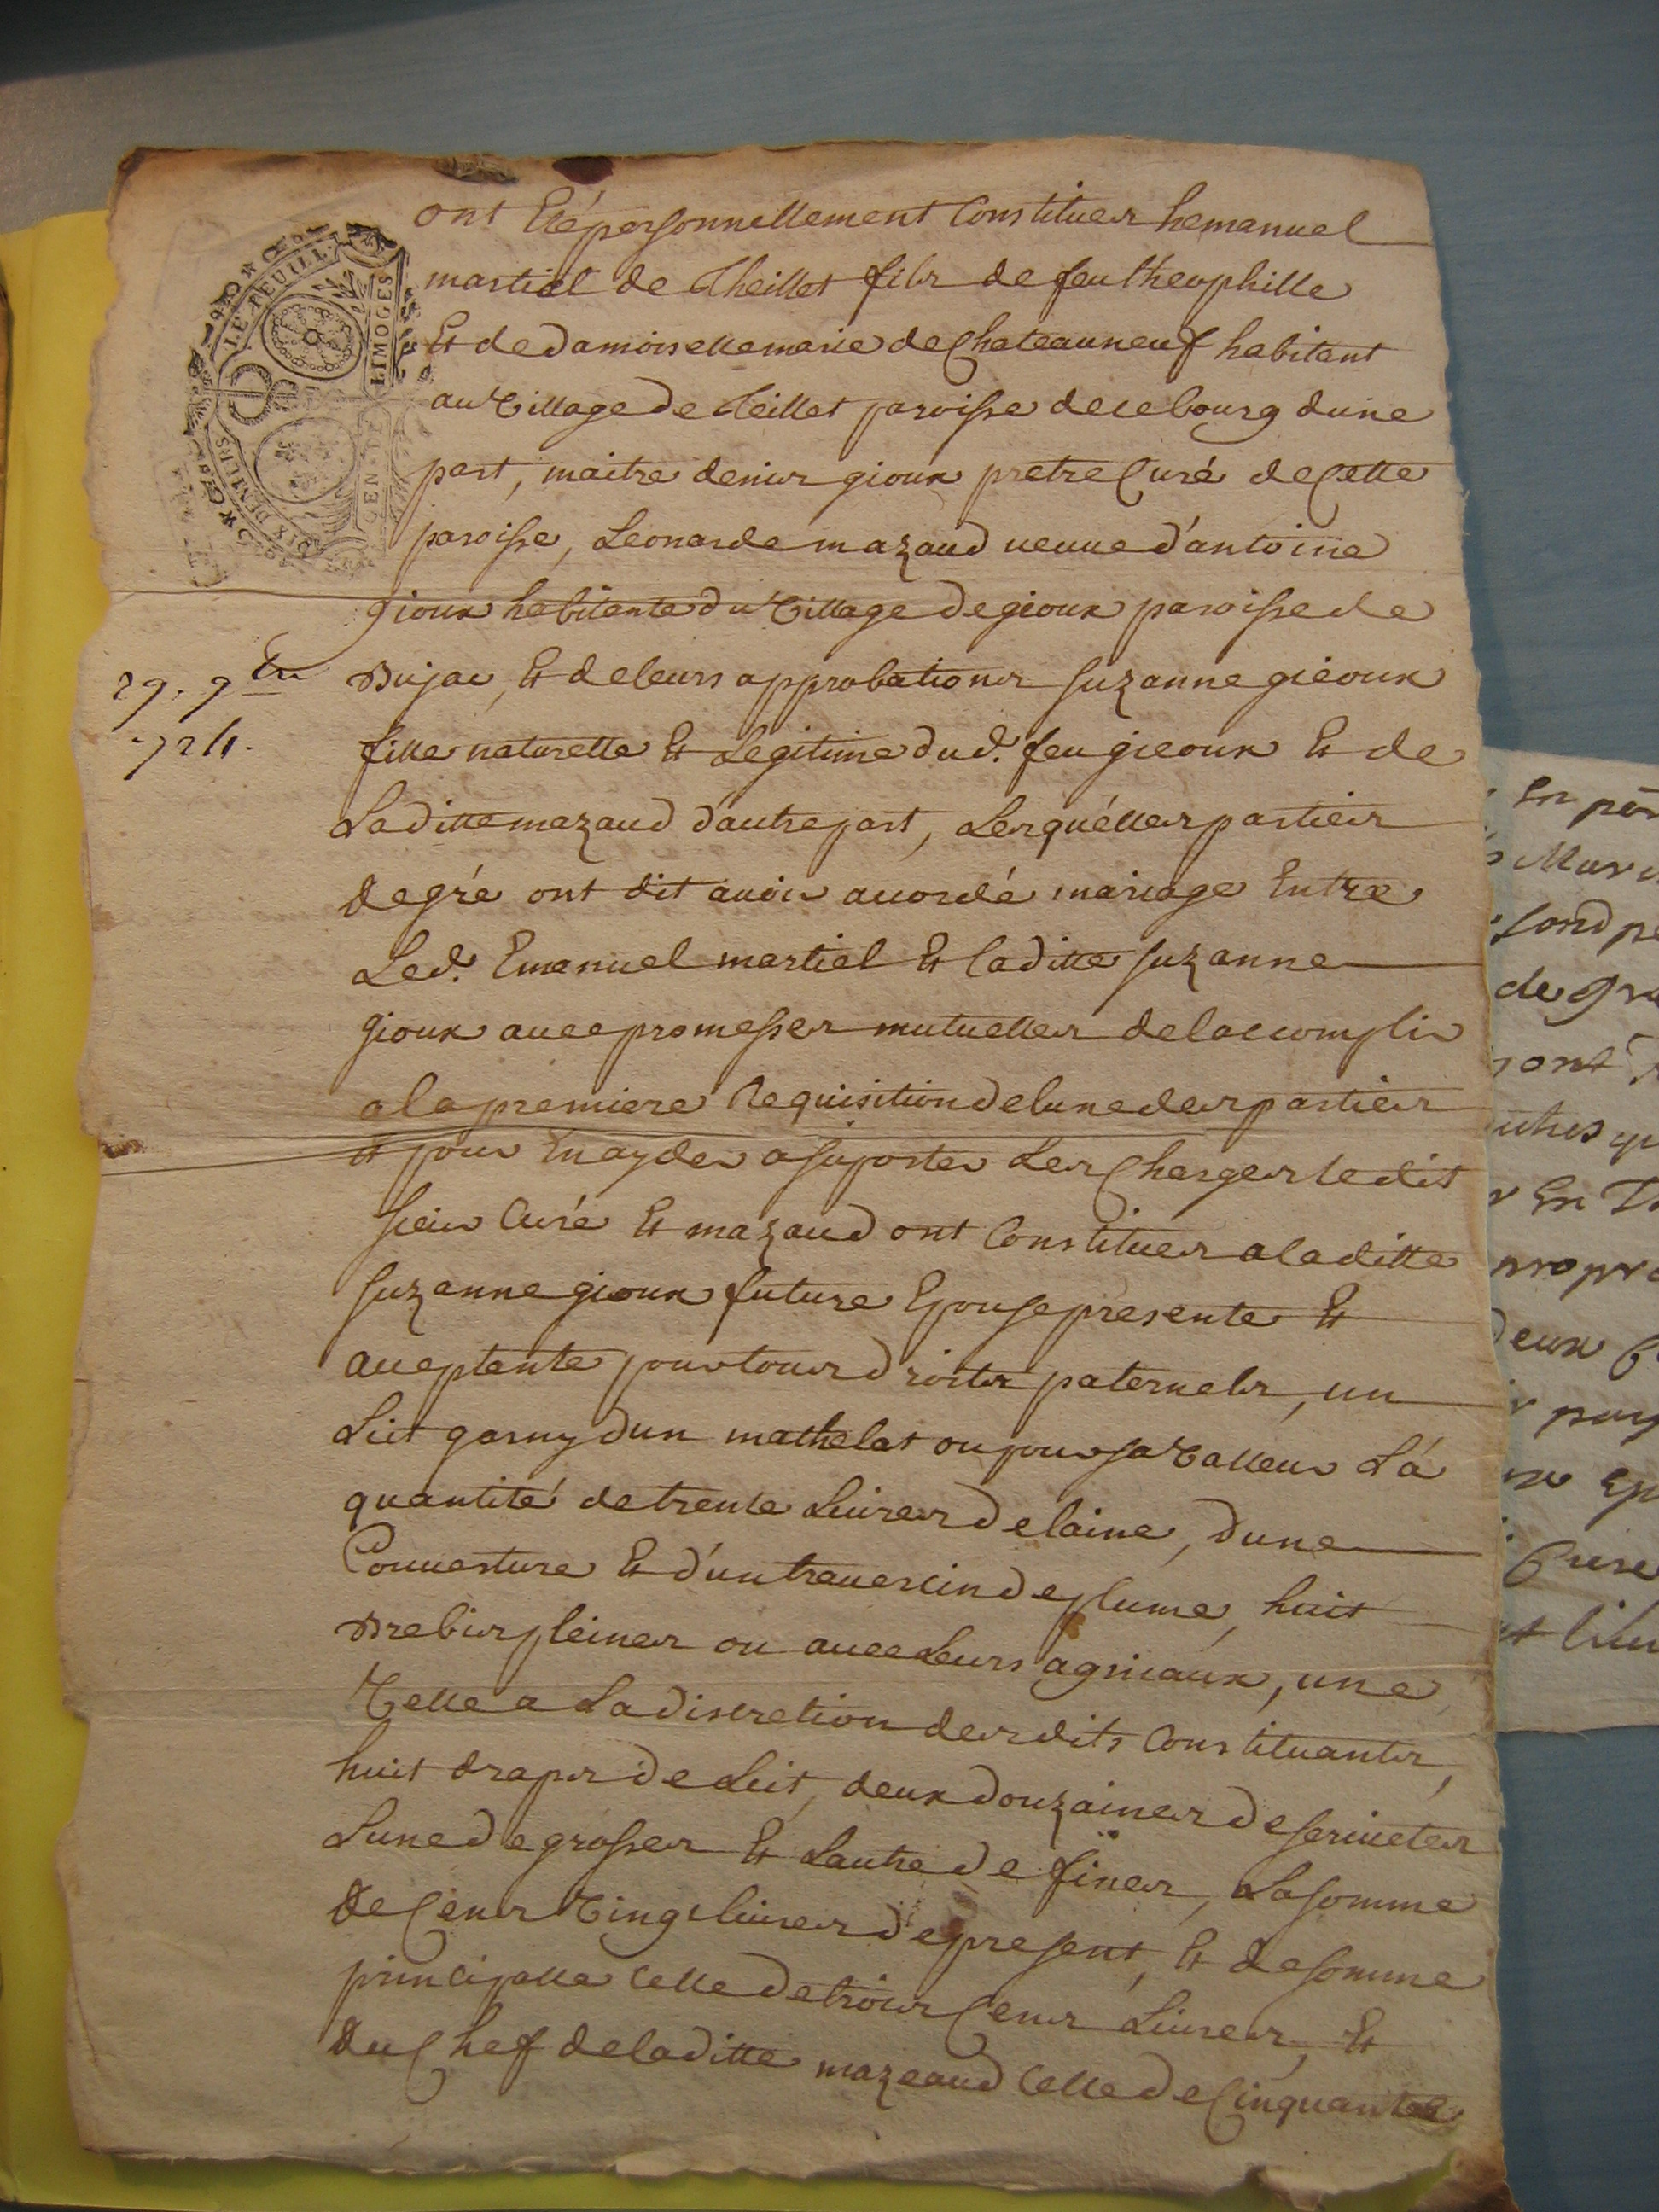 ont Eté personnellement Constitues hemanuel
martial de Theillet fils de feu theophille
Et de damoiselle marie de Chateauneuf habitant
au Village de Teillet paroisse de ce bourg dune
part, maitre denis gioux pretre Curé de Cette
paroisse, Leonarde mazaud veuve d'antoine
gioux habitante du Village de gioux paroisse de
Bujac, Et de leurs approbations suzanne gieoux
fille naturelle Et Legitime dud. feu gieoux Et de
Laditte mazaud d'autre part, Lesquélles parties
de gré ont dit avoir accordé mariage Entre
Led. Emanuel martial Et laditte suzanne
gioux avec promesses mutuelles de laccomplir
a la premiere Requisition de lune des parties
Et pour En ayder a suporter Les Charges le dit
sieur Curé Et mazaud ont Constitues a la ditte
suzanne gioux future Epouse présente Et
acceptente pour tous droits paternels, un
Lit garny dun mathelat ou pour sa Valleur Lá
quantité de trente Livres de laine, dune
Couverture Et d'un traversin de plume, huit
Brebis pleines ou avec Leurs agneaux, une
Velle a La discretion des dits Constituants,
huit draps de Lit, deux douzaines de serviettes
Lune de grosses Et Lautre de fines, La somme
de Cens Vingt livres de present, Et de somme
principalle Celle de trois Cens Livres, Et
du Chef de laditte mazeaud Celle de Cinquante
29. 9bre
1724.
LE FEUILL.
GEN. DE LIMOGES
SIX DENIERS